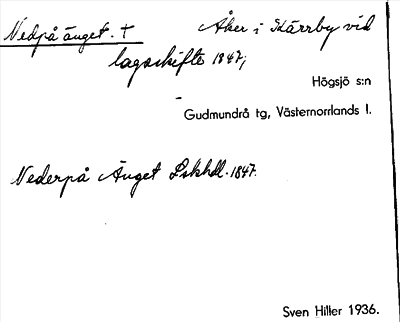 Nedpå änget. † Åker i Skärrby vid
lagaskifte 1847;
Högsjö s:n
Gudmundrå tg, Västernorrlands l.
Nederpå Änget Lskhdl. 1847.
Sven Hiller 1936.